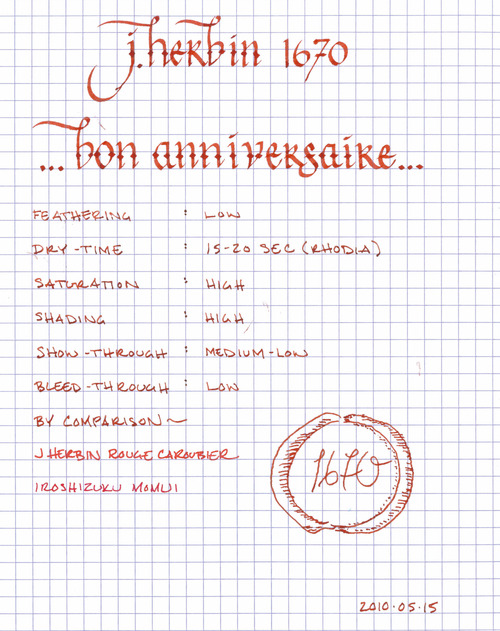 j. herbin 1670
...bon anniversaire...
FEATHERING : LOW
DRY-TIME : 15-20 SEC (RHODIA)
SATURATION : HIGH
SHADING : HIGH
SHOW-THROUGH : MEDIUM-LOW
BLEED-THROUGH : LOW
BY COMPARISON~
J.HERBIN ROUGE CAROUBIER
IROSHIZUKU MOMIJI
1670
2010.05.15